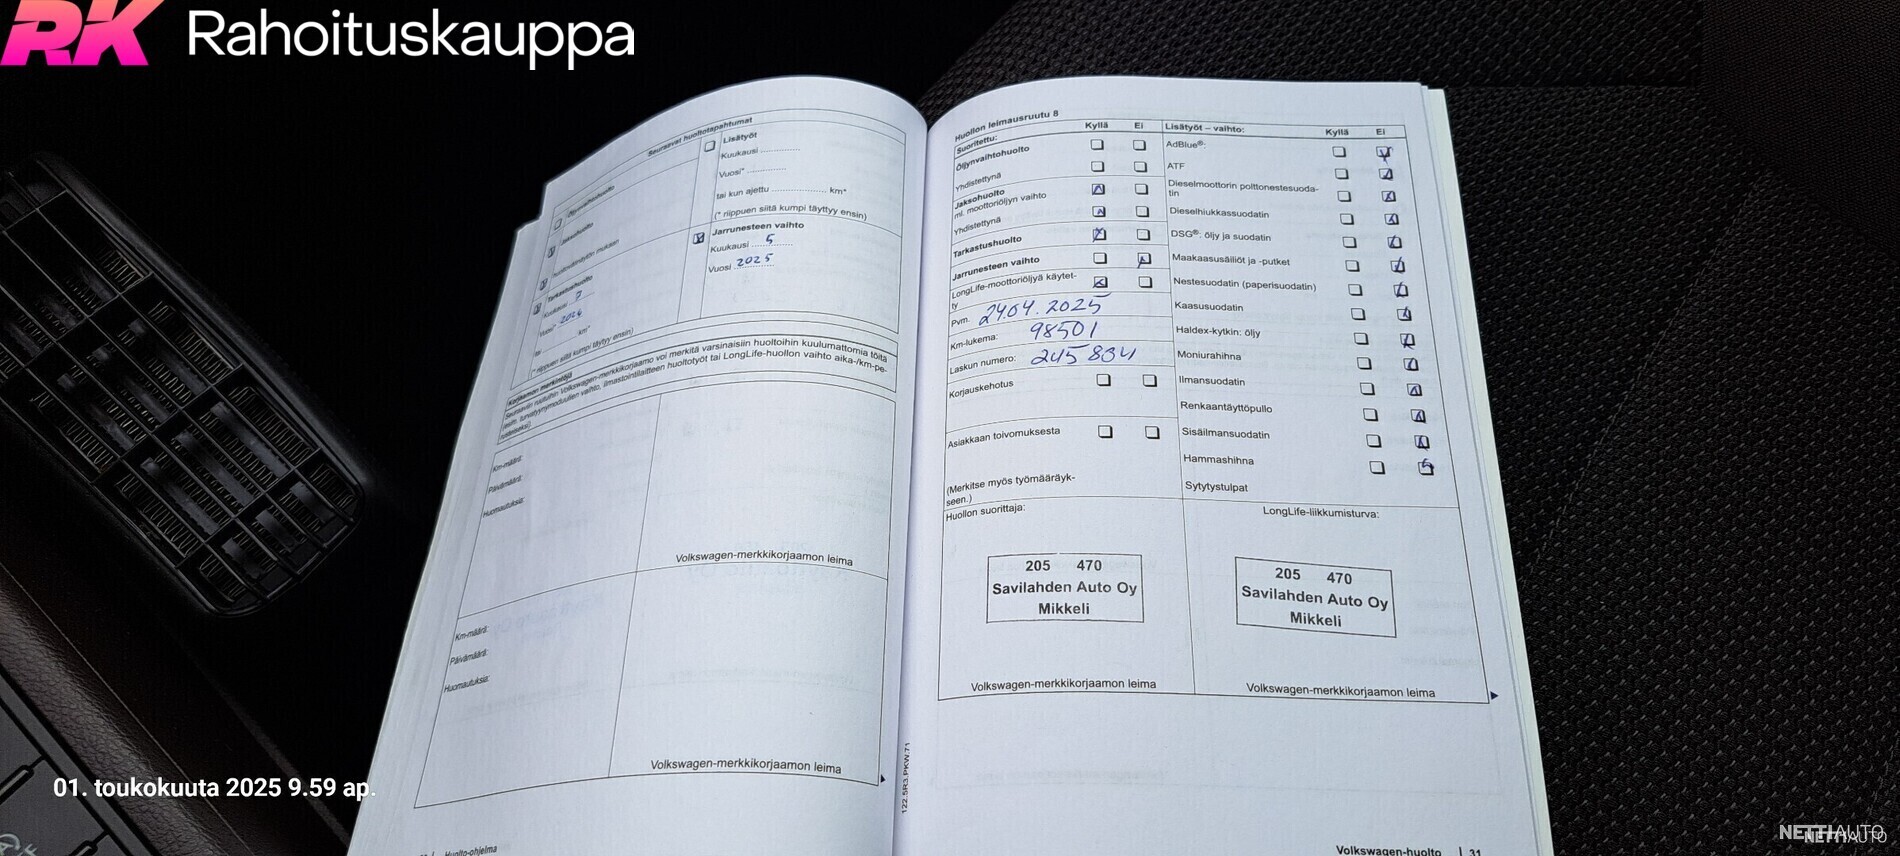 RK Rahoituskauppa
Seuraavat huoltotapahtumat
Öljynvaihtohuolto
Jaksohuolto
huoltovälinäytön mukaan
Tarkastushuolto
Kuukausi 7
Vuosi*
tai km*
(* riippuen siitä kumpi täytyy ensin)
Lisätyöt
Kuukausi
Vuosi*
tai kun ajettu km*
(* riippuen siitä kumpi täyttyy ensin)
Jarrunesteen vaihto
Kuukausi 5
Vuosi 2025
Korjaamon merkintöjä
Seuraaviin ruutuihin Volkswagen-merkkikorjaamo voi merkitä varsinaisiin huoltoihin kuulumattomia töitä
(esim. turvatyynymoduulien vaihto, ilmastointilaitteen huoltotyöt tai LongLife-huollon vaihto aika-/km-pe-
rusteiseksi).
Km-määrä:
Päivämäärä:
Huomautuksia:
Volkswagen-merkkikorjaamon leima
Km-määrä:
Päivämäärä:
Huomautuksia:
Volkswagen-merkkikorjaamon leima
Huolto-ohjelma
122.5R3.PKW.71
Huollon leimausruutu 8
Suoritettu: Kyllä Ei
Öljynvaihtohuolto
Yhdistettynä
Jaksohuolto
ml. moottoriöljyn vaihto
Yhdistettynä
Tarkastushuolto
Jarrunesteen vaihto
LongLife-moottoriöljyä käytet-
ty
Pvm. 24.04.2025
Km-lukema: 98501
Laskun numero: 245834
Korjauskehotus
Asiakkaan toivomuksesta
(Merkitse myös työmääräyk-
seen.)
Lisätyöt – vaihto: Kyllä Ei
AdBlue®:
ATF
Dieselmoottorin polttonestesuoda-
tin
Dieselhiukkassuodatin
DSG®: öljy ja suodatin
Maakaasusäiliöt ja -putket
Nestesuodatin (paperisuodatin)
Kaasusuodatin
Haldex-kytkin: öljy
Moniurahihna
Ilmansuodatin
Renkaantäyttöpullo
Sisäilmansuodatin
Hammashihna
Sytytystulpat
Huollon suorittaja:
205 470
Savilahden Auto Oy
Mikkeli
Volkswagen-merkkikorjaamon leima
LongLife-liikkumisturva:
205 470
Savilahden Auto Oy
Mikkeli
Volkswagen-merkkikorjaamon leima
Volkswagen-huolto | 31
01. toukokuuta 2025 9.59 ap.
NETTIAUTO
NETTIAUTO